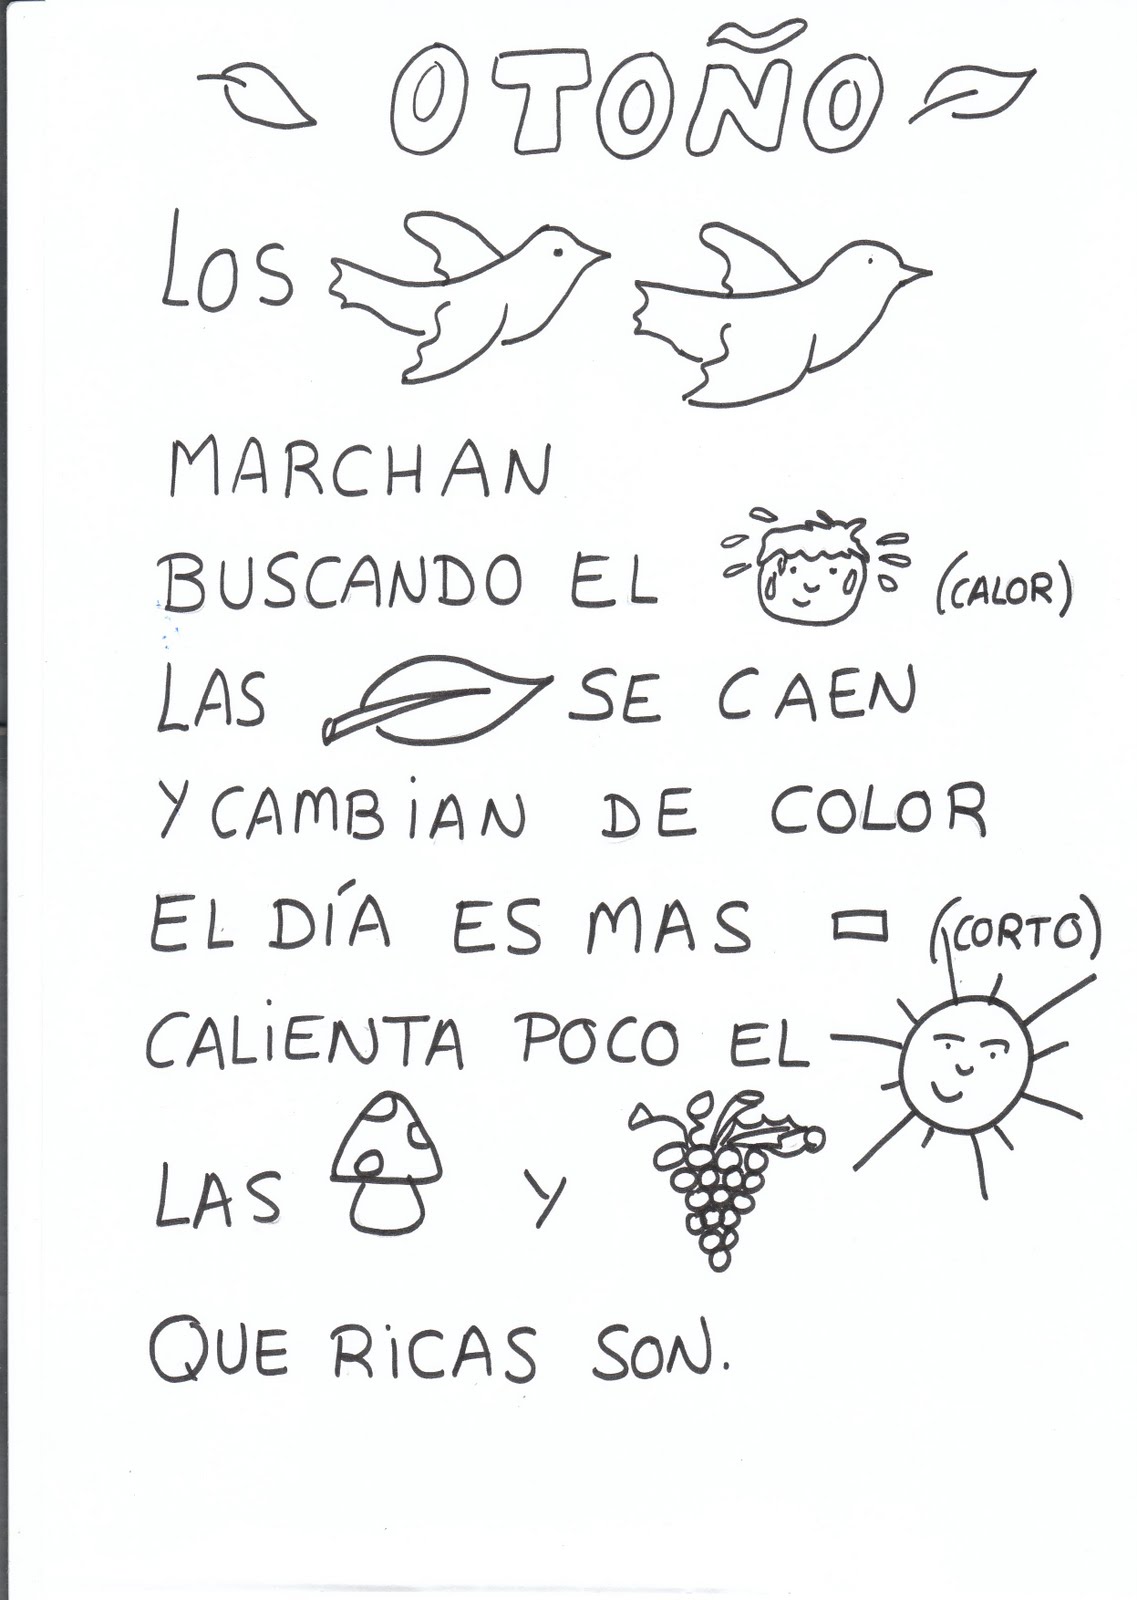 OTOÑO
LOS
MARCHAN
BUSCANDO EL (CALOR)
LAS SE CAEN
Y CAMBIAN DE COLOR
EL DÍA ES MAS (CORTO)
CALIENTA POCO EL
LAS Y
QUE RICAS SON.